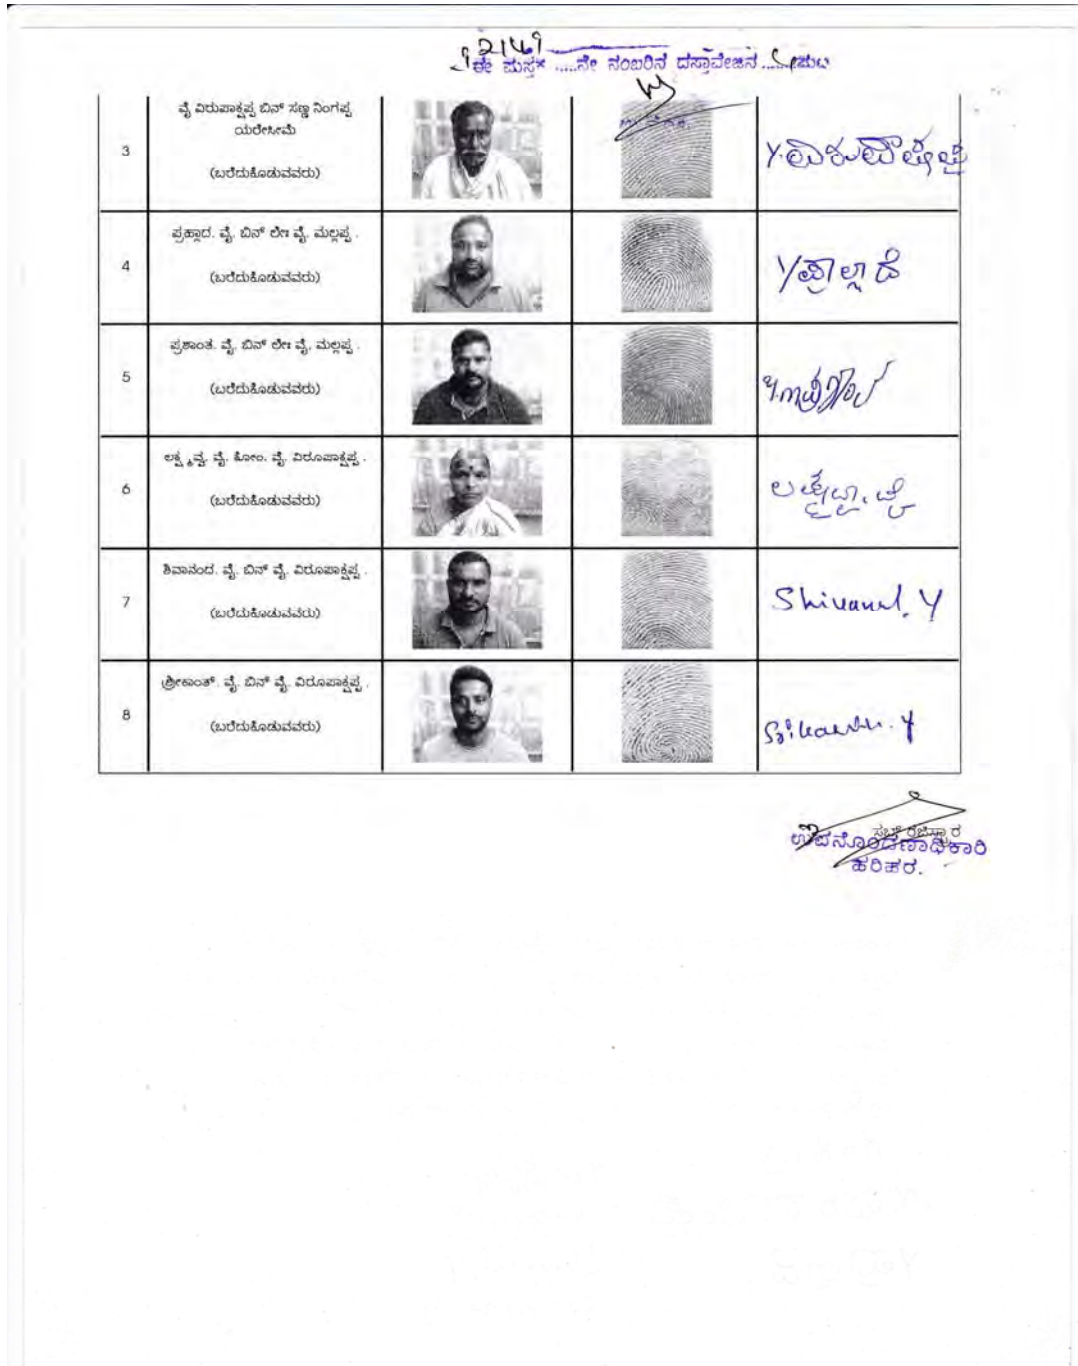 2141
ಈ ಪುಸ್ತಕ .....ನೇ ನಂಬರಿನ ದಸ್ತಾವೇಜಿನ ...... ಪುಟ
3
ವೈ ವಿರುಪಾಕ್ಷಪ್ಪ ಬಿನ್ ಸಣ್ಣ ನಿಂಗಪ್ಪ
ಯರೇಸೀಮೆ
(ಬರೆದುಕೊಡುವವರು)
Y.ವಿರುಪಾಕ್ಷಪ್ಪ
4
ಪ್ರಹ್ಲಾದ. ವೈ. ಬಿನ್ ಲೇಃ ವೈ. ಮಲ್ಲಪ್ಪ .
(ಬರೆದುಕೊಡುವವರು)
5
ಪ್ರಶಾಂತ. ವೈ. ಬಿನ್ ಲೇಃ ವೈ. ಮಲ್ಲಪ್ಪ .
(ಬರೆದುಕೊಡುವವರು)
6
ಲಕ್ಷ್ಮವ್ವ. ವೈ. ಕೋಂ. ವೈ. ವಿರೂಪಾಕ್ಷಪ್ಪ .
(ಬರೆದುಕೊಡುವವರು)
7
ಶಿವಾನಂದ. ವೈ. ಬಿನ್ ವೈ. ವಿರೂಪಾಕ್ಷಪ್ಪ .
(ಬರೆದುಕೊಡುವವರು)
Shivand. Y
8
ಶ್ರೀಕಾಂತ್. ವೈ. ಬಿನ್ ವೈ. ವಿರೂಪಾಕ್ಷಪ್ಪ .
(ಬರೆದುಕೊಡುವವರು)
ಸಬ್ ರಿಜಿಸ್ಟ್ರಾರ
ಉಪನೊಂದಣಾಧಿಕಾರಿ
ಹರಿಹರ.